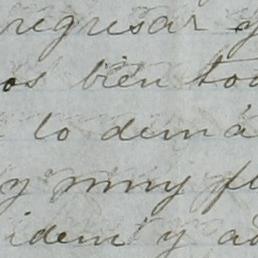 regresar y
os bien tod
lo demá
y muy fl
idem y ad